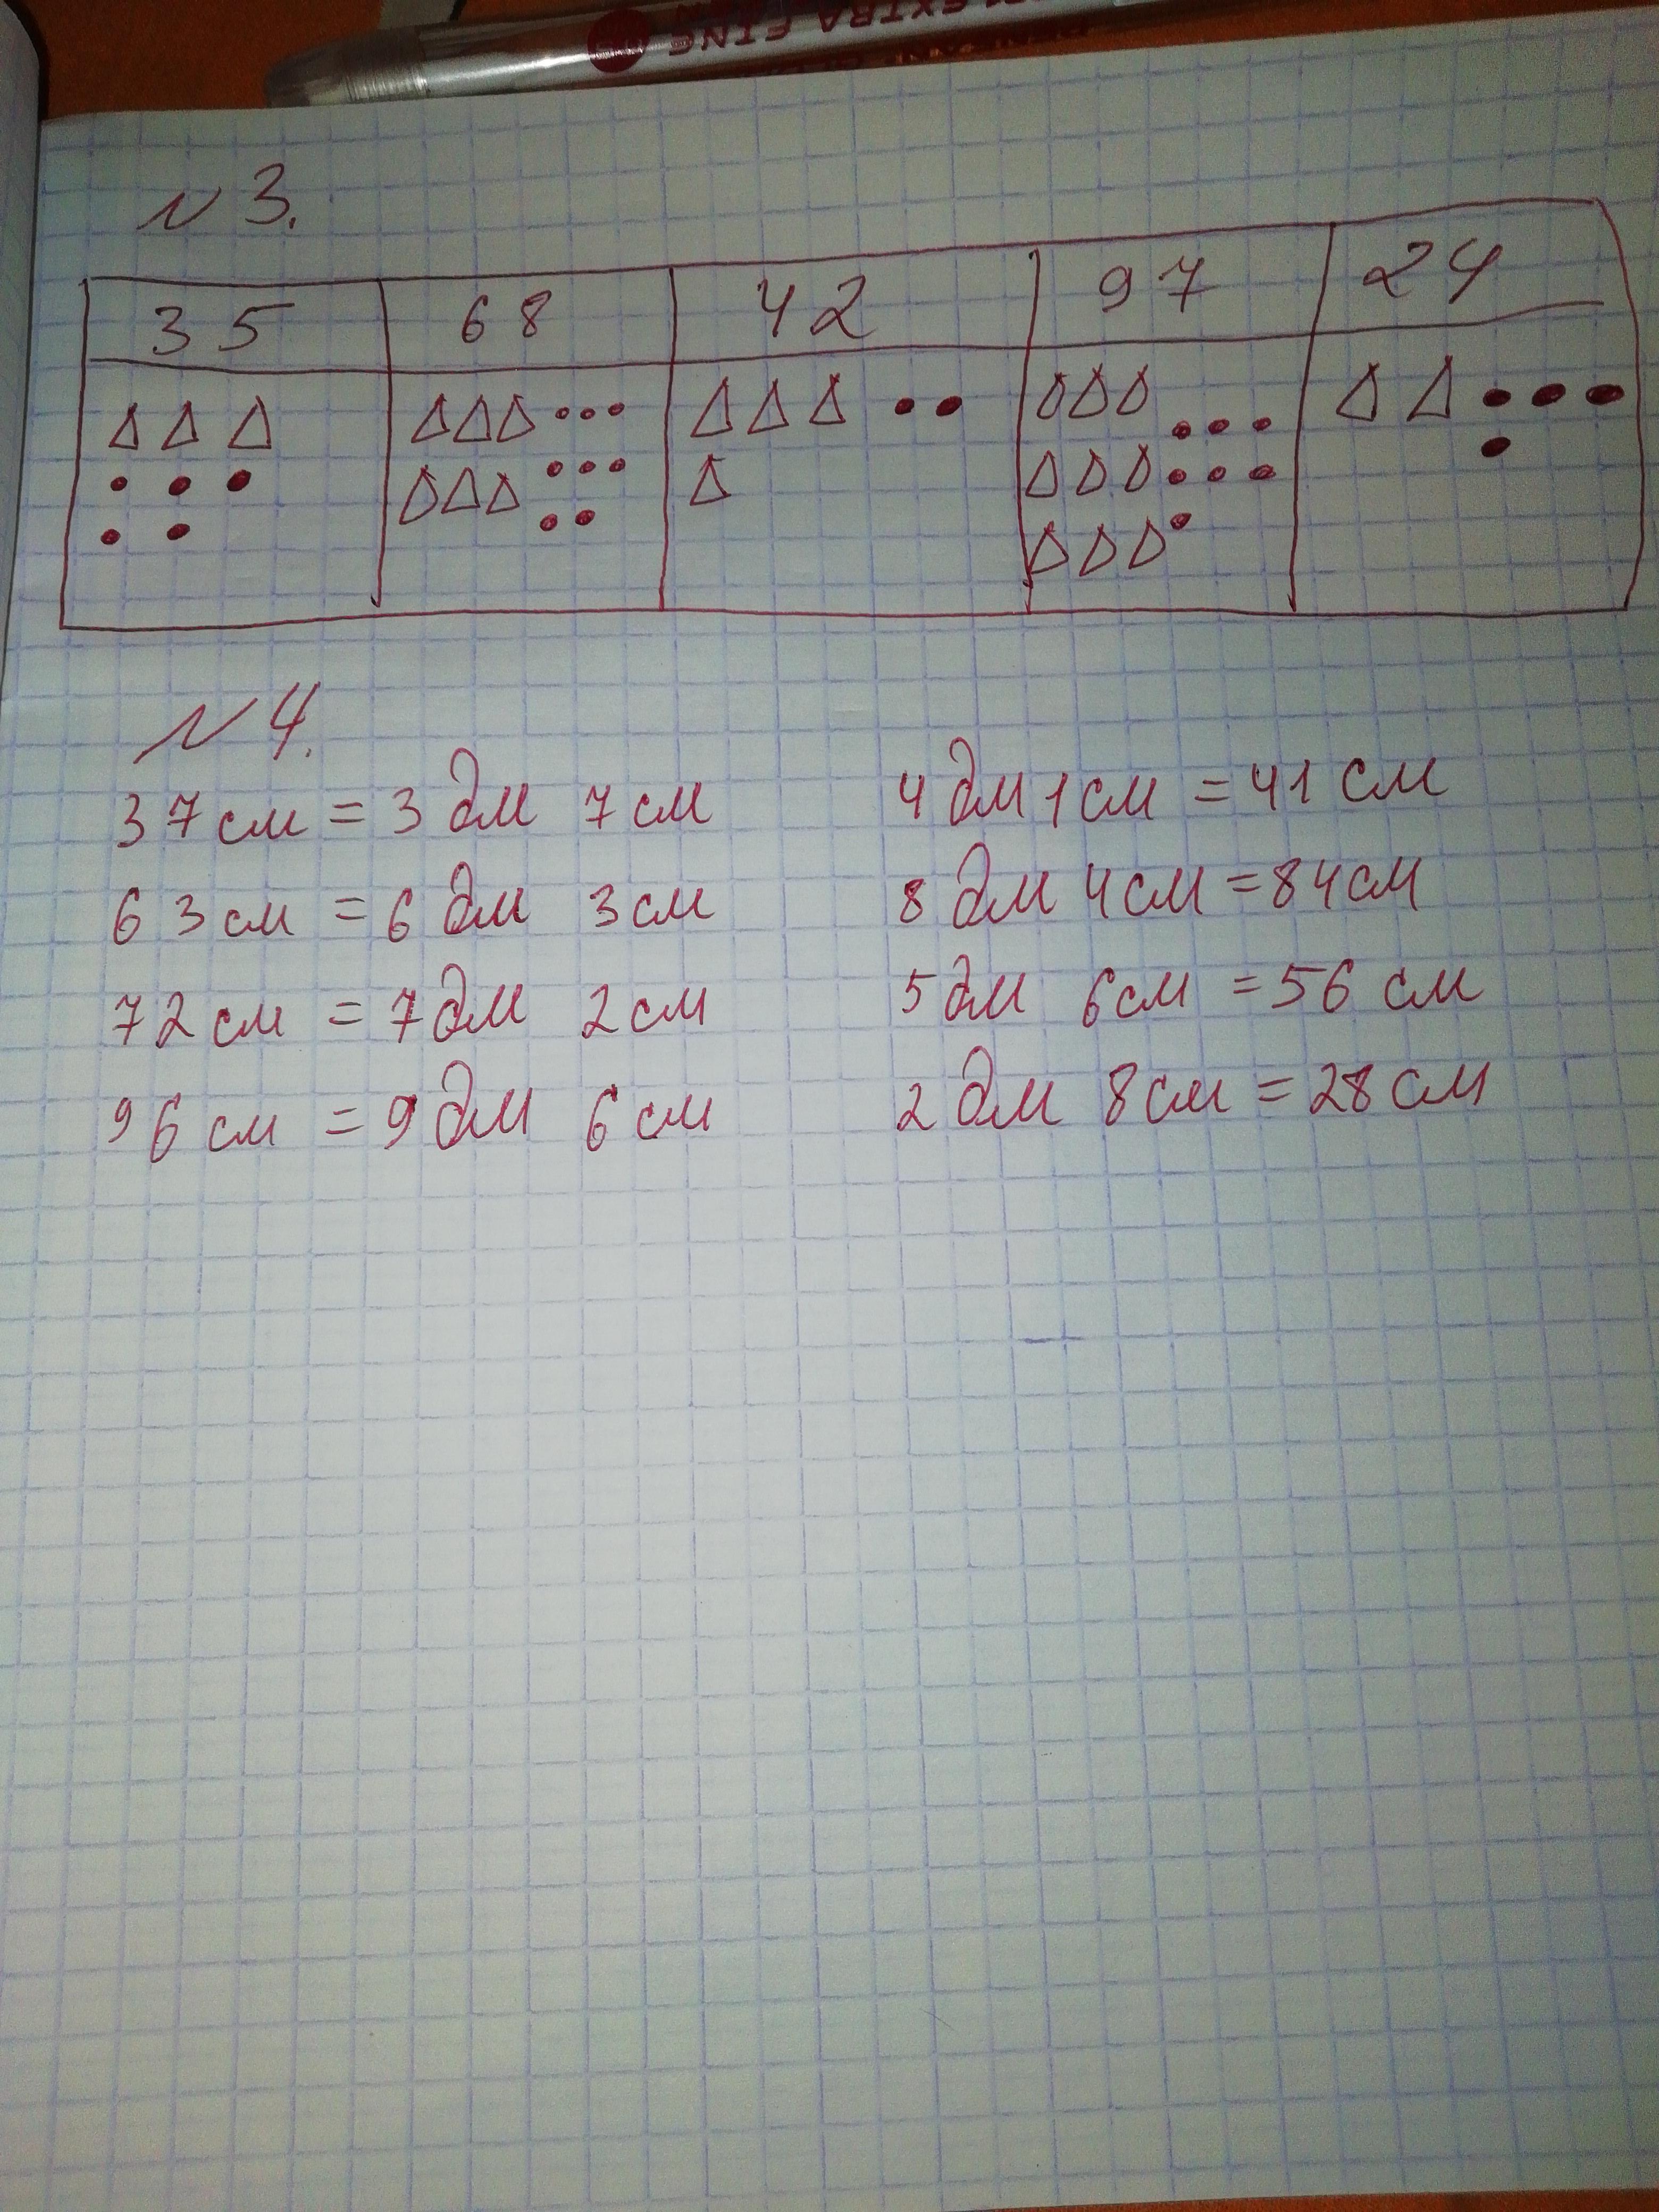 EXTRA FINE
N 3.
35 68 42 97 24
N 4.
37 см = 3 дм 7 см 4 дм 1 см = 41 см
63 см = 6 дм 3 см 8 дм 4 см = 84 см
72 см = 7 дм 2 см 5 дм 6 см = 56 см
96 см = 9 дм 6 см 2 дм 8 см = 28 см